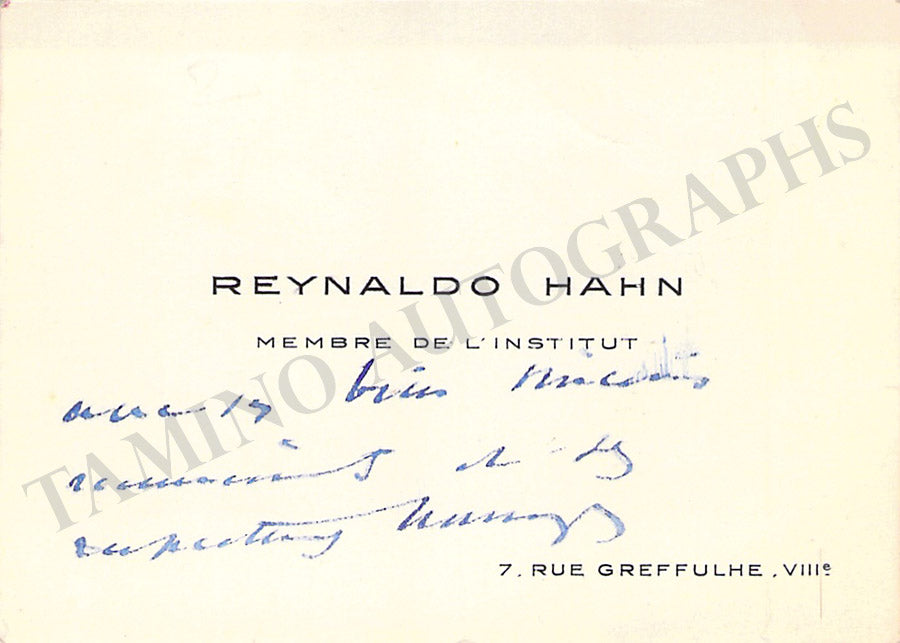 REYNALDO HAHN
MEMBRE DE L'INSTITUT
avec ses bien sincères
remerciements et ses
respectueux hommages
7, RUE GREFFULHE, VIIIe
TAMINO AUTOGRAPHS